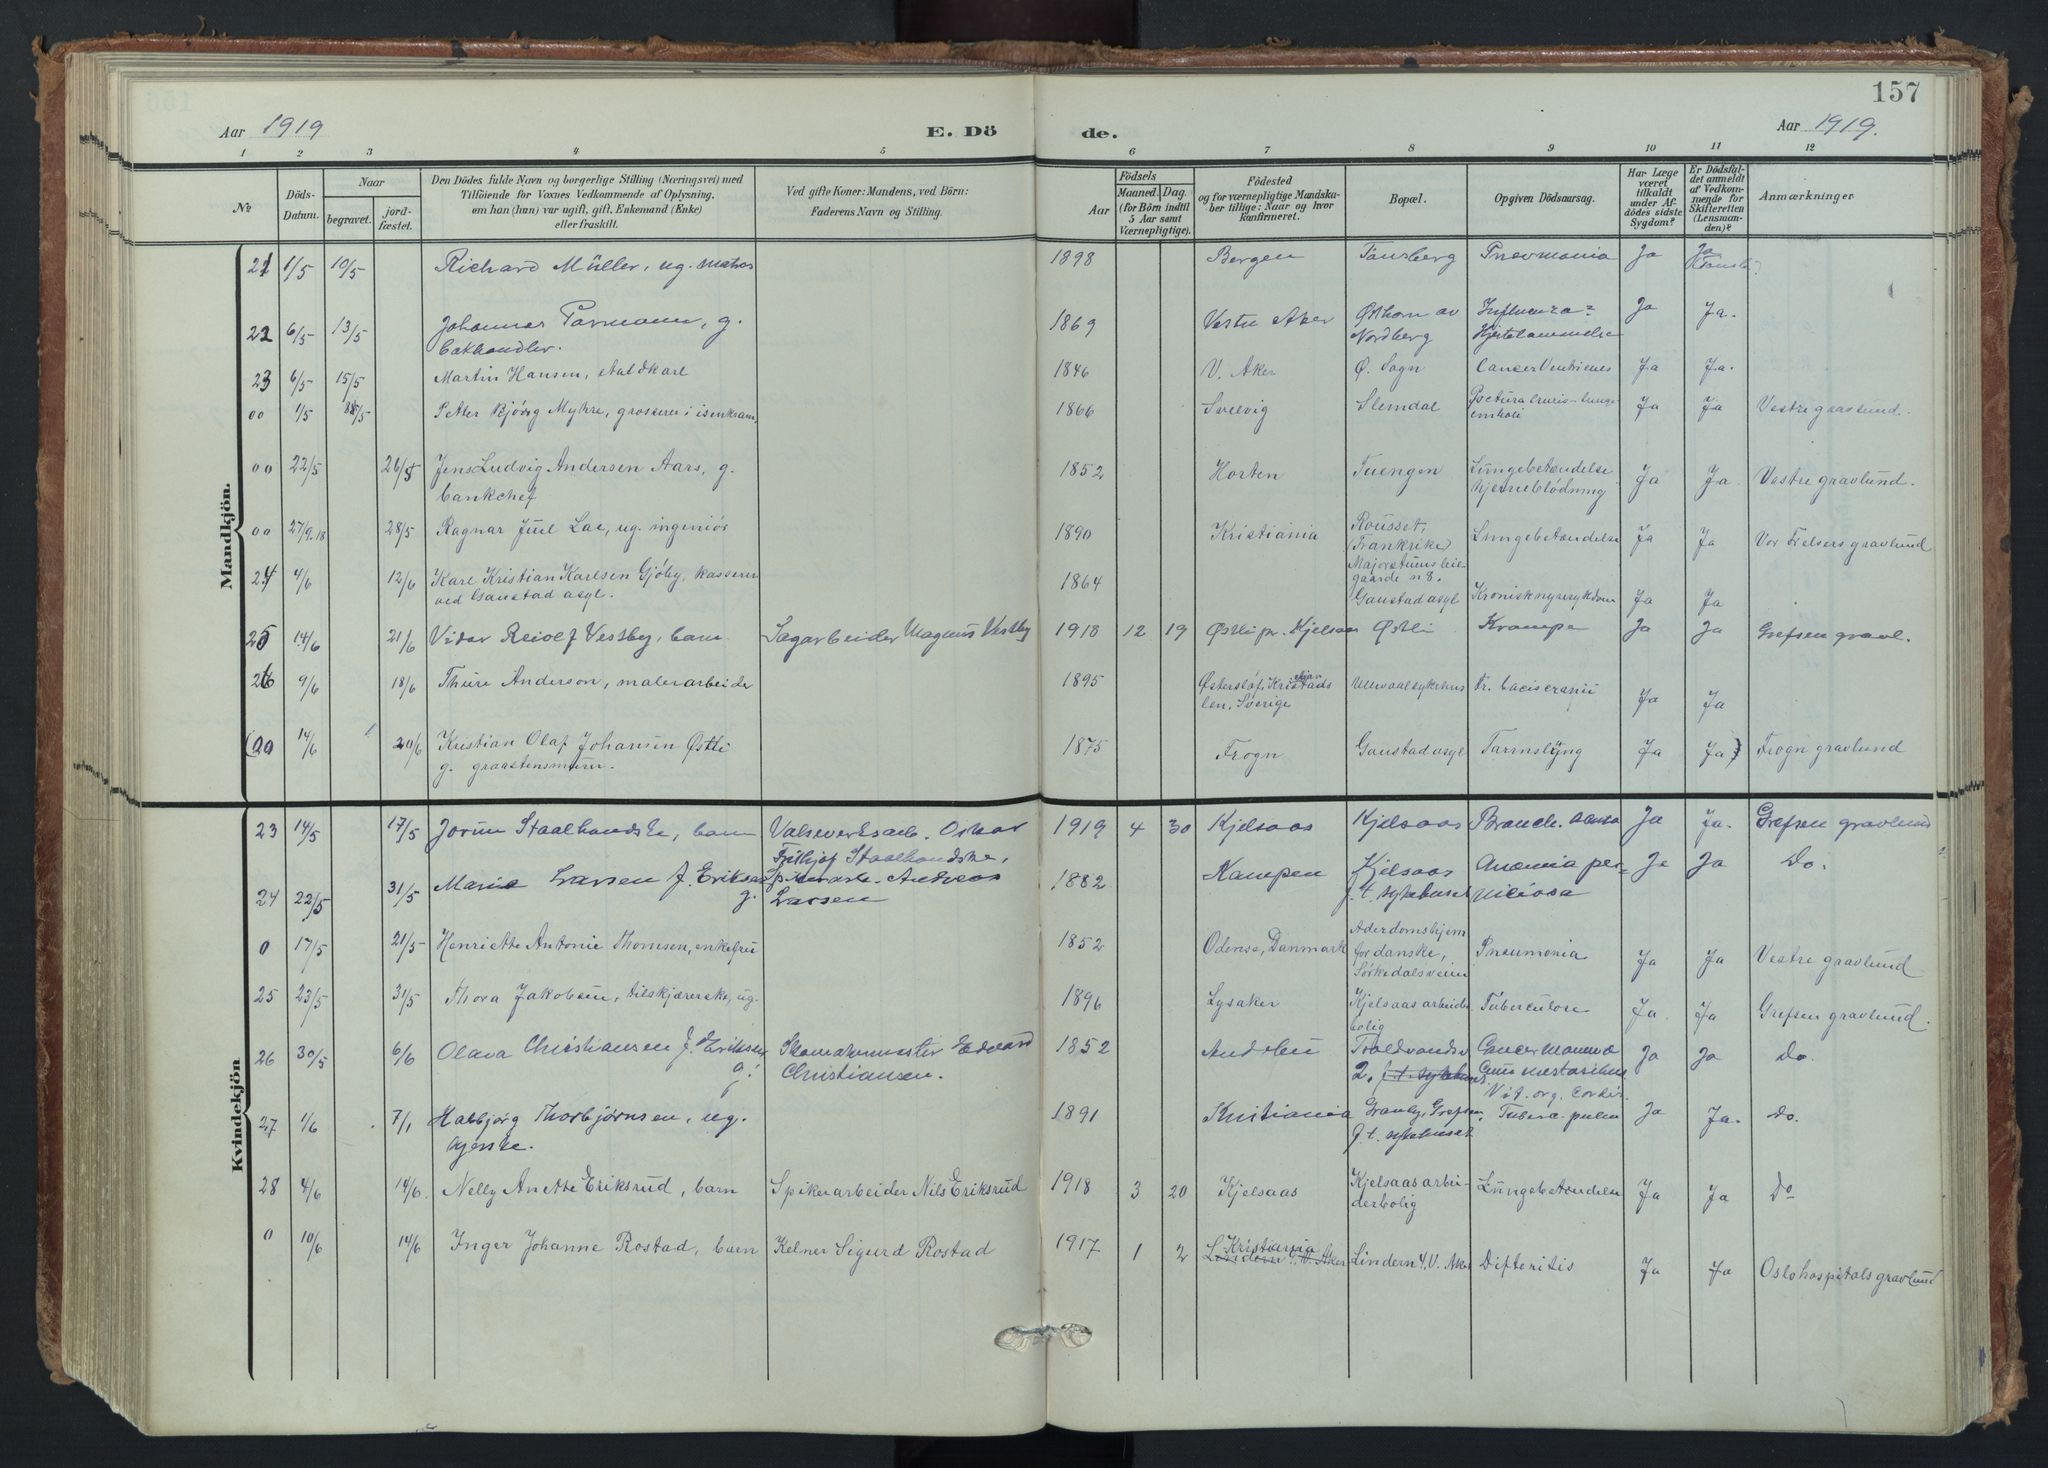 157
Aar 1919 E. Dö de. Aar 1919.
1 2 3 4 5 6 7 8 9 10 11 12
№
Döds-Datum.
Naar
begravet.
jordfæstet.
Den Dödes fulde Navn og borgerlige Stilling (Næringsvei) med
Tilföiende for Voxnes Vedkommende af Oplysning,
om han (hun) var ugift, gift, Enkemand (Enke)
eller fraskilt.
Ved gifte Koner: Mandens, ved Börn:
Faderens Navn og Stilling.
Aar
Födsels
Maaned. Dag.
(for Börn indtil
5 Aar samt
Værnepligtige).
Födested
og for værnepligtige Mandskaber tillige: Naar og hvor
konfirmeret.
Bopæl.
Opgiven Dödsaarsag.
Har Læge
været
tilkaldt
under Afdödes sidste
Sygdom?
Er Dödsfaldet anmeldt
af Vedkommende for
Skifteretten
(Lensmanden)?
Anmærkninger
Mandkjön.
21 1/5 10/5 Richard Müller, ug. matros 1898 Bergen Tønsberg Pneumonia Ja Ja
22 6/5 13/5 Johannes Parmann, g. 1869 Vestre Aker Østhorn av Influenza= Ja Ja.
bokhandler. Nordberg Hjertelammelse
23 6/5 15/5 Martin Hansen, staldkarl 1846 V. Aker Ø. Sogn Cancer Ventricules Ja Ja.
00 1/5 Petter Bjönig Myhre, grosserer i isenkram, 1866 Svelvig Slemdal Ja Ja Vestre gravlund.
00 22/5 26/5 Jens Ludvig Andersen Aars, g. 1852 Horten Tuengen Lungebetændelse Ja Ja. Vestre gravlund.
bankchef hjerneblödning
00 27/9.18 28/5 Ragnar Juul Lae, ug. ingeniör 1890 Kristiania Rousset, Lungebetændelse Ja Ja Vor Frelsers gravlund
(Frankrike)
Majorstuens
24 4/6 12/6 Karl Kristian Karlsen Gjöby, kasserer 1864 gaarde n 8.
ved Gaustad asyl. Gaustad asyl Kronisk nyresykdom Ja Ja
25 14/6 21/6 Vidar Reiolf Vestby, barn Sagarbeider Magnus Vestby 1918 12 19 Østli pr. Kjelsaas Østli Krampe Ja Ja Grefsen gravl.
26 9/6 18/6 Thure Anderson, malerarbeider 1895 Österslöf, Kristians Ullevaal sykehus Fr. basis cranii Ja Ja
len, Sverige
(00 14/6 20/6 Kristian Olaf Johansen Østli 1875 Frogn Gaustad asyl Tarmslyng Ja Ja) Frogn gravlund
g. graastensmurer.
Kvindekjön
23 14/5 17/5 Jorun Staalhandske, barn Valseverksarb. Oskar 1919 4 30 Kjelsaas Kjelsaas Ja Ja. Grefsen gravlund
Fritjof Staalhandske,
24 22/5 31/5 Marie Larsen f. Eriksen g. Andreas 1882 Kampen Kjelsaas Anæmia per- Ja Ja Do.
Larsen f. t. sykehuset niciosa
0 17/5 21/5 Henriette Antonie Thomsen, enkefru 1852 Odense, Danmark Aderdomshjem Pneumonia Ja Ja Vestre gravlund
for danske,
Sörkedalsveien
25 23/5 31/5 Thora Jakobsen, tilskjærerske, ug. 1896 Lysaker Kjelsaas arbeider Tuberculose Ja. Ja Grefsen gravlund.
bolig
26 30/5 6/6 Olava Christiansen f. Eriksen g. Skomakermester Edvard 1852 Cancer Mammæ Ja Ja Do.
Christiansen. 2, f. t. sykehuset Cum
Vit. org. Cordis.
27 1/6 Halbjörg Thorbjørnsen, ug. 1891 Kristiania Granly, Grefsen. Tuberc. pulm Ja Ja. Do.
f. t. sykehuset
28 4/6 14/6 Nelly Anette Eriksrud, barn Spikerarbeider Nils Eriksrud 1918 3 20 Kjelsaas Kjelsaas arbei- Lungebetændelse Ja Ja Do
derbolig
0 10/6 14/6 Inger Johanne Rostad, barn Kelner Sigurd Rostad 1917 1 2 Kristiania
Lindern 4 V. Aker Lindern 4, V. Aker Difteritis Ja Ja Oslo hospitals gravlund